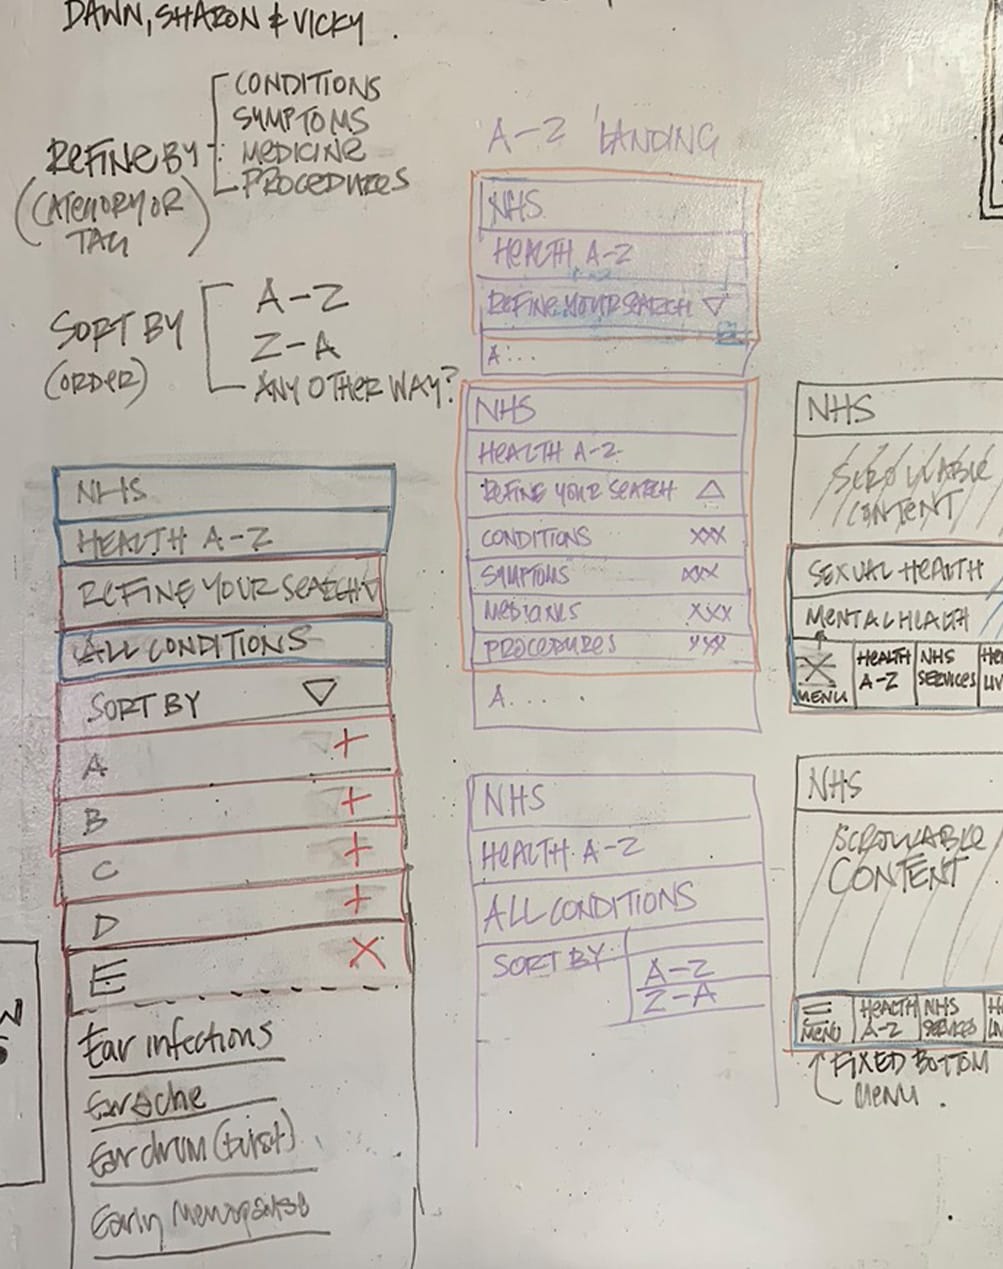 DAWN, SHARON & VICKY.
REFINE BY
(CATEGORY OR
TAG)
CONDITIONS
SYMPTOMS
MEDICINE
PROCEDURES
SORT BY
(ORDER)
A-Z
Z-A
ANY OTHER WAY?
NHS
HEALTH A-Z
REFINE YOUR SEARCH
ALL CONDITIONS
SORT BY
A +
B +
C +
D +
E X
Ear infections
Earache
Ear drum (burst)
Early Menopause
A-Z LANDING
NHS
HEALTH A-Z
REFINE YOUR SEARCH
A...
NHS
HEALTH A-Z
REFINE YOUR SEARCH
CONDITIONS XXX
SYMPTOMS XXX
XXX
PROCEDURES XXX
A....
NHS
HEALTH A-Z
ALL CONDITIONS
SORT BY
A-Z
Z-A
NHS
SCROLLABLE
CONTENT
SEXUAL HEALTH
MENTAL HEALTH
X
MENU
HEALTH
A-Z
NHS
SERVICES
NHS
SCROLLABLE
CONTENT
MENU
HEALTH
A-Z
NHS
SERVICES
FIXED BOTTOM
MENU.